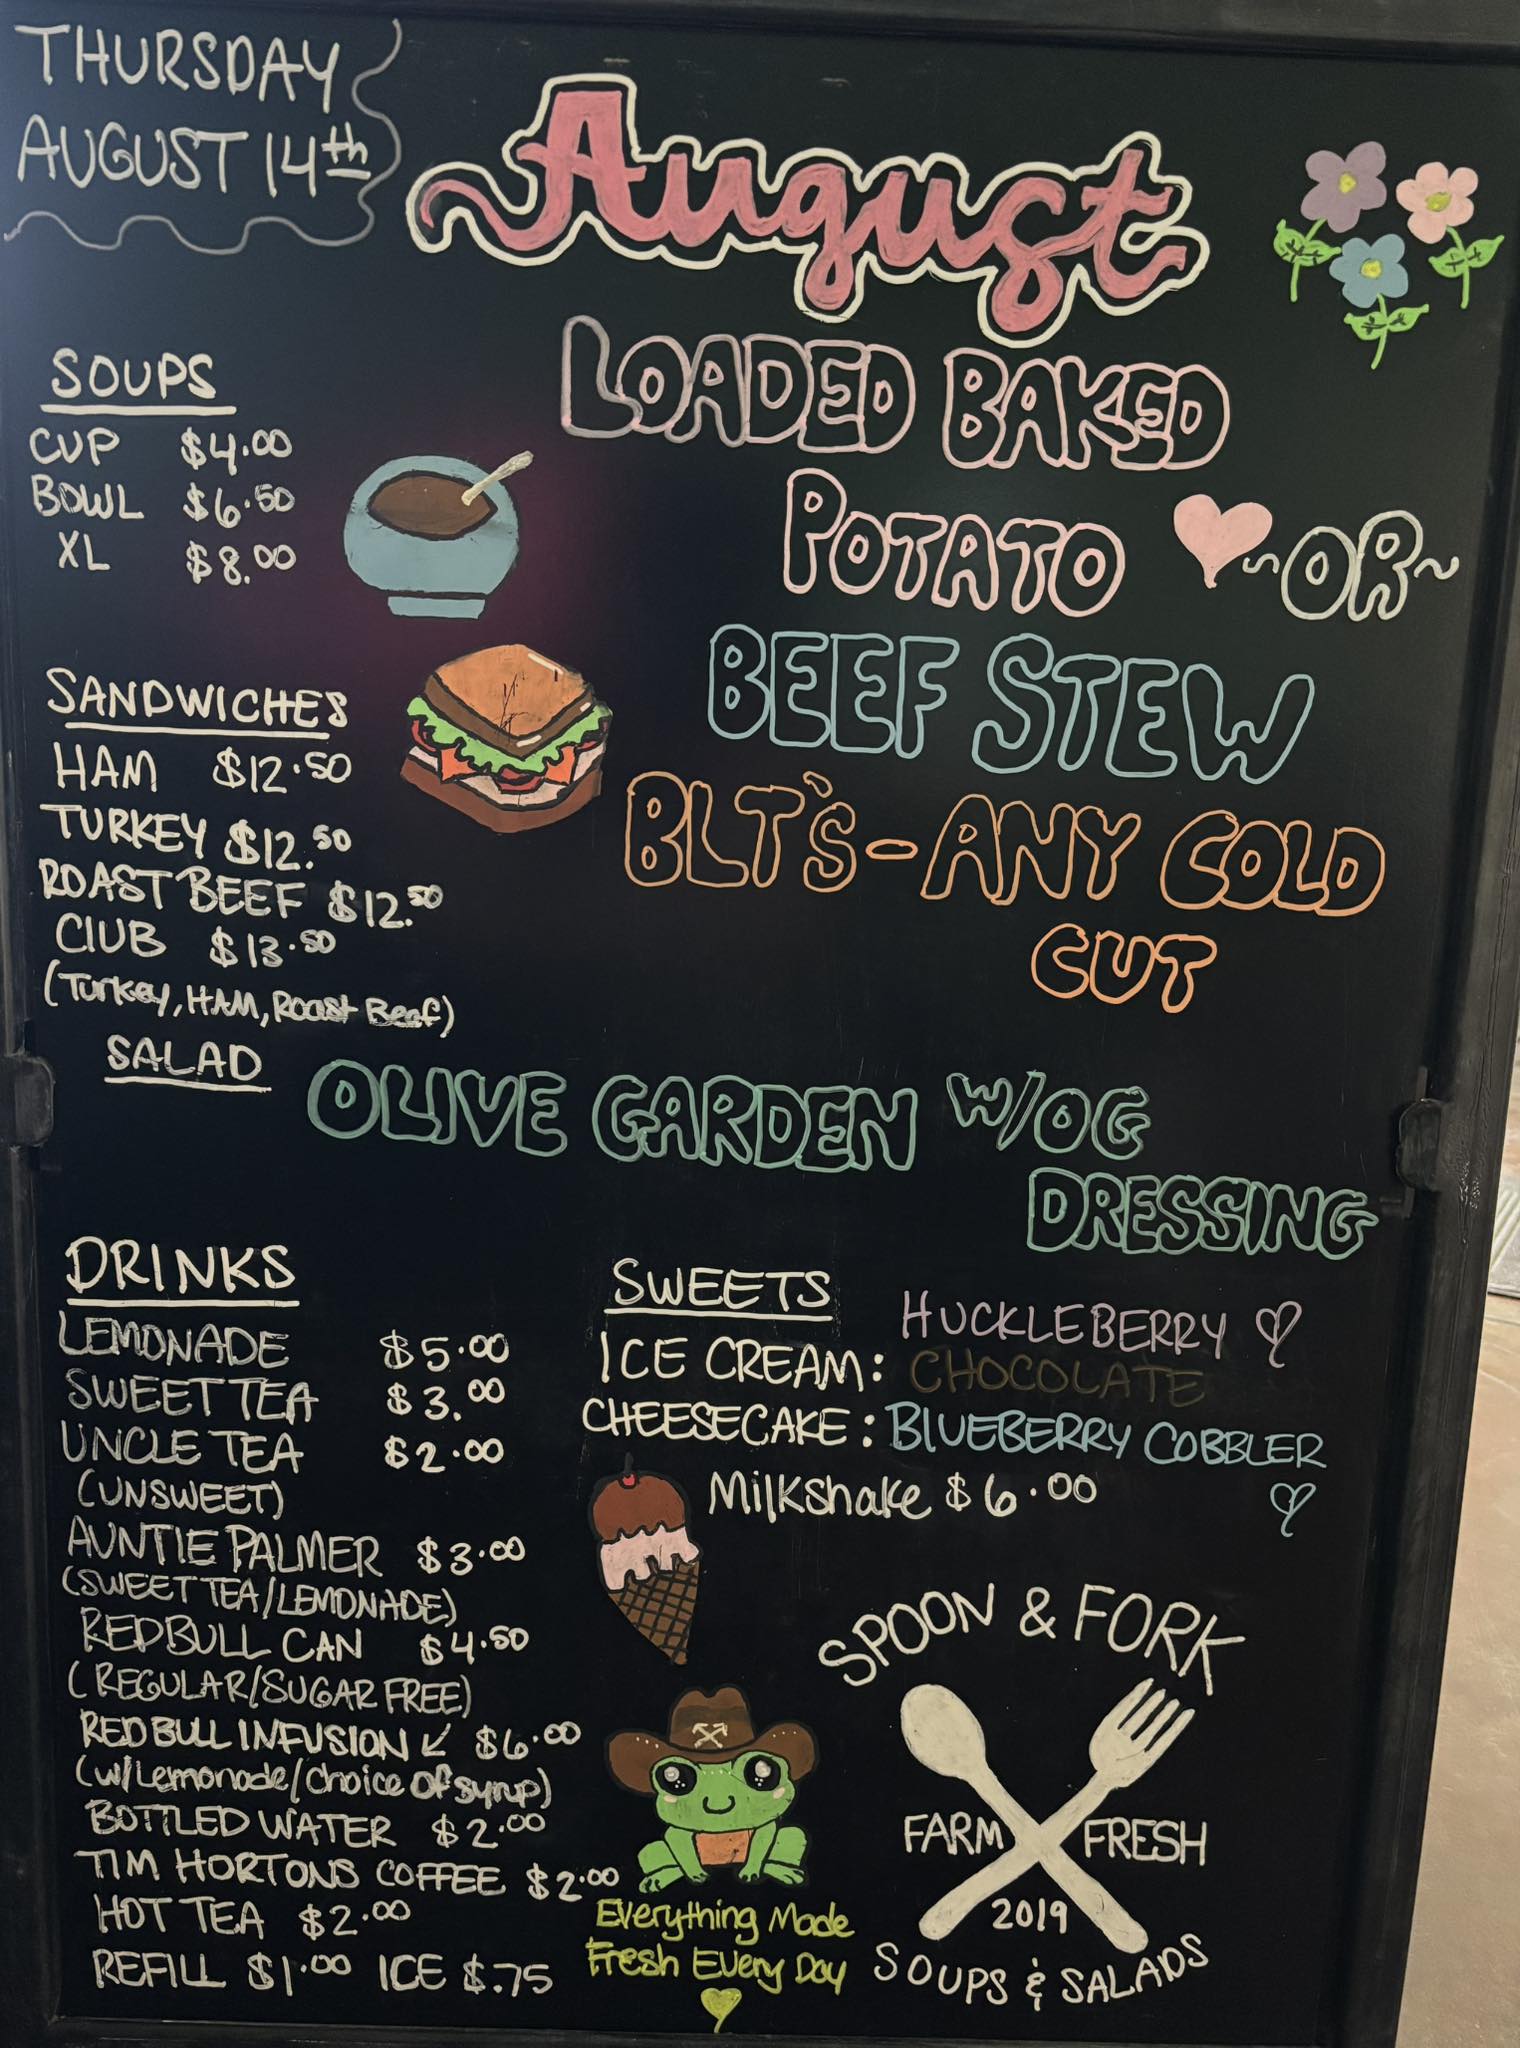 THURSDAY
AUGUST 14th
August
LOADED BAKED
POTATO ~OR~
BEEF STEW
BLT'S - ANY COLD
CUT
SOUPS
CUP $4.00
BOWL $6.50
XL $8.00
SANDWICHES
HAM $12.50
TURKEY $12.50
ROAST BEEF $12.50
CLUB $13.50
(Turkey, HAM, Roast Beef)
SALAD
OLIVE GARDEN W/OG
DRESSING
DRINKS
LEMONADE $5.00
SWEET TEA $3.00
UNCLE TEA $2.00
(UNSWEET)
AUNTIE PALMER $3.00
(SWEET TEA/LEMONADE)
REDBULL CAN $4.50
(REGULAR/SUGAR FREE)
RED BULL INFUSION ↙ $6.00
(w/Lemonade/Choice OF syrup)
BOTTLED WATER $2.00
TIM HORTONS COFFEE $2.00
HOT TEA $2.00
REFILL $1.00 ICE $.75
SWEETS
HUCKLEBERRY
ICE CREAM: CHOCOLATE
CHEESECAKE: BLUEBERRY COBBLER
Milkshake $6.00
Everything Made
Fresh Every Day
SPOON & FORK
FARM FRESH
2019
SOUPS & SALADS